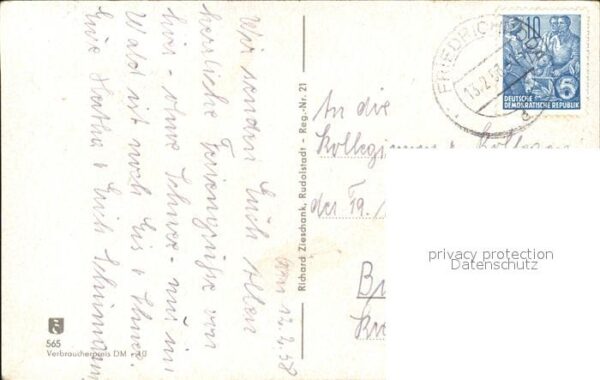 Wir senden Euch allen
herrliche Feriengrüße von
hier - ohne Schnee - nur im
Wald ist noch Eis & Schnee.
Eure Hertha & Erich
den 12.2.58
565
Verbraucherpreis DM
Richard Zieschank, Rudolstadt - Reg.-Nr. 21
FRIEDRICHRODA
13.2.58
d
10
5
DEUTSCHE
DEMOKRATISCHE REPUBLIK
An die
Kolleginnen & Kollegen
der Fa.
privacy protection
Datenschutz